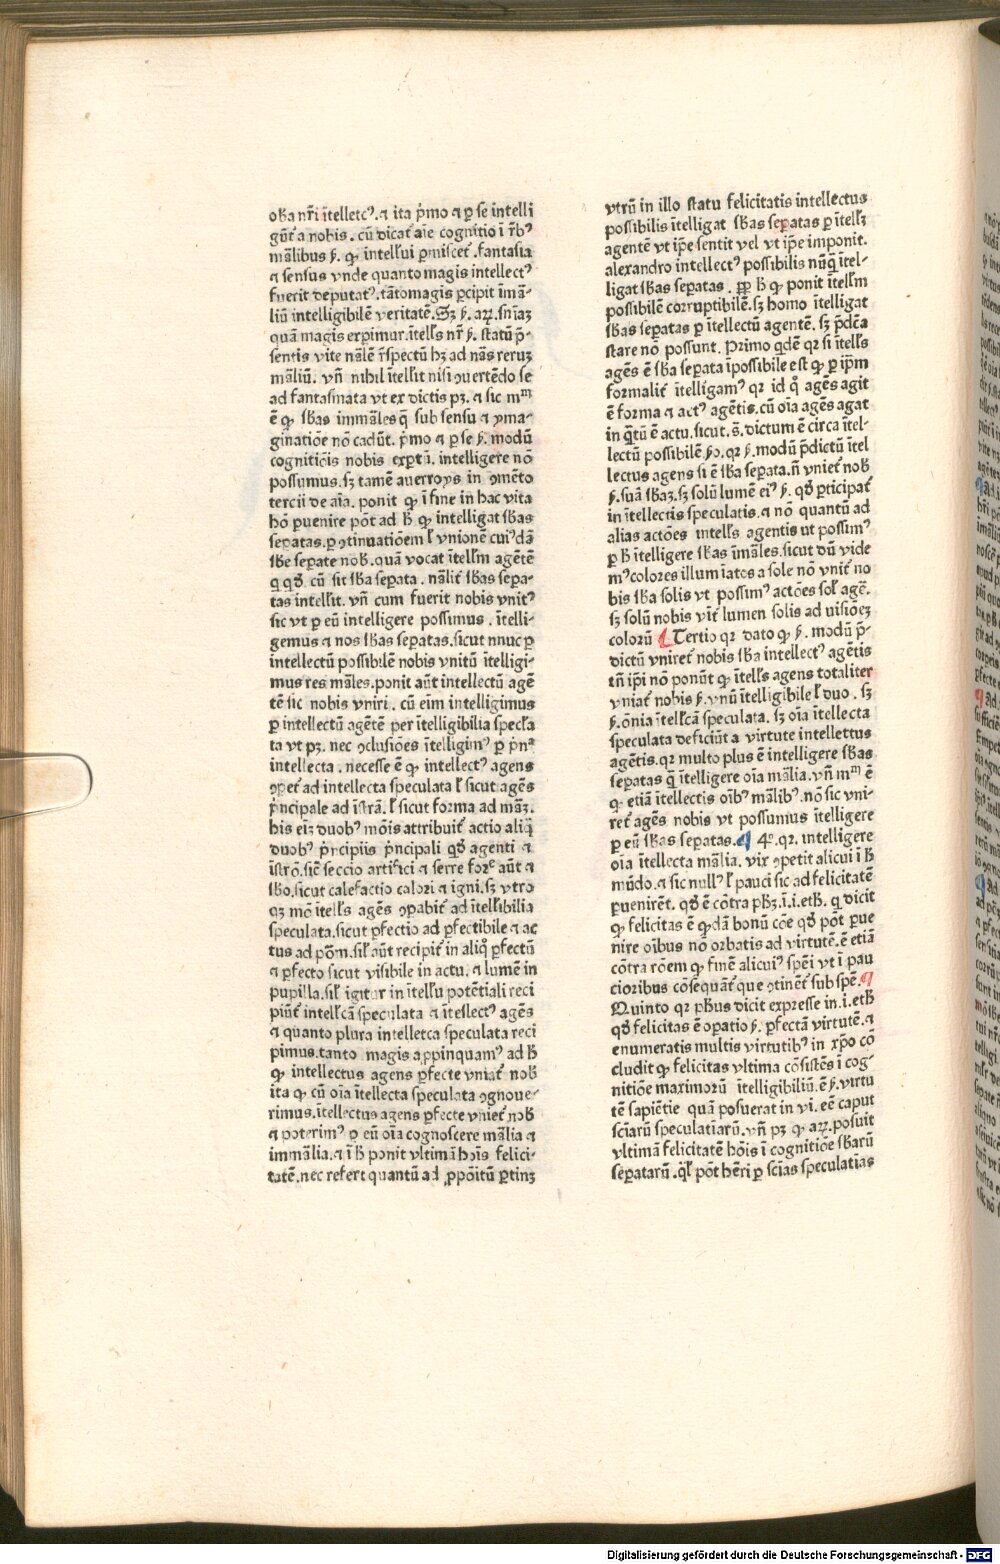 oīa nr̄i ītelletꝰ. ⁊ ita p̄mo ⁊ ꝑ se intelli
gūt̄ a nobis. cū dicat aīe cognitio ī r̄bꝰ
mālibus ẜ. ꝙ intellui ꝑmiscet̄. fantasia
⁊ sensus vnde quanto magis intellectꝰ
fuerit deputatꝰ. tātomagis ꝑcipit īmā⸗
liū intelligibilē veritatē. Sꝫ ẜ. aꝝ. sn̄iaꝫ
quā magis exꝑimur. ītell̄s nr̄ ẜ. statū p̄⸗
sentis vite nālē r̄spectū hꝫ ad nās reruꝫ
māliū. vn̄ nihil ītell̄it nisi ꝯuertēdo se
ad fantasmata vt ex dictis pꝫ. ⁊ sic mᵐ
ē ꝙ sƀas immāles q̄ sub sensu ⁊ yma⸗
ginatiōe nō cadūt. p̄mo ⁊ ꝑ se ẜ. modū
cognitiōis nobis exꝑtū. intelligere nō
possumus. sꝫ tamē auerroys in ꝯmēto
tercii de aīa. ponit ꝙ ī fine in hac vita
hō ꝑuenire pōt ad ƀ ꝙ intelligat sƀas
seꝑatas. ꝑ ꝯtinuatiōem l̄ vnionē cuiꝰdā
sƀe seꝑate noƀ. quā vocat ītell̄m agētē
q̄ qđ cū sit sƀa seꝑata. nālit̄ sƀas seꝑa⸗
tas intell̄it. vn̄ cum fuerit nobis vnitꝰ
sic vt ꝑ eū intelligere possimus. ītelli⸗
gemus ⁊ nos sƀas seꝑatas. sicut nnuc ꝑ
intellectū possibilē nobis vnitū ītelligi⸗
mus res māles. ponit aūt intellectū agē
tē sic nobis vniri. cū eim intelligimus
ꝑ intellectū agētē per ītelligibilia specl̄a
ta vt pꝫ. nec ꝯclusiōes ītelligimꝰ ꝑ p̄nᵃ
intellecta. necesse ē ꝙ intellectꝰ agens
ꝯpet̄ ad intellecta speculata l̄ sicut agēs
p̄ncipale ad īstrā. l̄ sicut forma ad māꝫ.
his eiꝫ duobꝰ mōis attribuit̄ actio aliq̄
duobꝰ p̄ncipiis p̄ncipali qđ agenti ⁊
īstrō. sic̄ seccio artifici ⁊ serre forᵉ aūt ⁊
sƀo. sicut calefactio calori ⁊ igni. sꝫ vtro
qꝫ mō ītell̄s agēs ꝯpabit̄ ad ītell̄ibilia
speculata. sicut ꝑfectio ad ꝑfectibile ⁊ ac
tus ad pōm. sil̄ aūt recipit̄ in aliq̊ ꝑfectū
⁊ ꝑfecto sicut visibile in actu. ⁊ lumē in
pupilla. sil̄ igitur in ītell̄u potētiali reci
piūt̄ intell̄cā speculata ⁊ ītellectꝰ agēs
⁊ quanto plura intelletca speculata reci
pimus. tanto magis aꝓpinquamꝰ ad ƀ
ꝙ intellectus agens ꝑfecte vniat̄ noƀ
ita ꝙ cū oīa ītellecta speculata ꝯgnoue⸗
rimus. ītellectus agens ꝑfecte vniet̄ noƀ
⁊ poterimꝰ ꝑ eū oīa cognoscere mālia ⁊
immālia. ⁊ ī ƀ ponit vltimā hoīs felici⸗
tatē. nec refert quantū ad ꝓpōitū ꝑtinꝫ
vtrū in illo statu felicitatis intellectus
possibilis ītelligat sƀas seꝑatas ꝑ ītell̄ꝫ
agentē vt ip̄e sentit vel vt ip̄e imponit.
alexandro intellectꝰ possibilis nūq̄ ītel⸗
ligat sƀas seꝑatas. ꝓꝑ ƀ ꝙ ponit ītell̄m
possibilē corruptibilē. sꝫ homo ītelligat
sƀas seꝑatas ꝑ ītellectū agentē. sꝫ p̄dc̄a
stare nō possunt. Primo qͥdē qꝛ si ītell̄s
agēs ē sƀa seꝑata īpossibile est ꝙ ꝑ ip̄m
formalit̄ ītelligamꝰ qꝛ id q̊ agēs agit
ē forma ⁊ actꝰ agētis. cū oīa agēs agat
in qͣtū ē actu. sicut. s̄. dictum ē circa ītel⸗
lectū possibilē ẜo. qꝛ ẜ. modū p̄dictū ītel
lectus agens si ē sƀa seꝑata. n̄ vniet̄ noƀ
ẜ. suā sƀaꝫ. sꝫ solū lumē eiꝰ ẜ. qđ ꝑticipat̄
in ītellectis speculatis. ⁊ nō quantū ad
alias actōes intell̄s agentis ut possimꝰ
ꝑ ƀ ītelligere sƀas īmāles. sicut dū vide
mꝰ colores illumīatos a sole nō vnit̄ no
bis sƀa solis vt possimꝰ actōes sol̄ agē.
sꝫ solū nobis vīt̄ lumen solis ad uisiōeꝫ
colorū ¶ Tertio qꝛ dato ꝙ ẜ. modū p̄⸗
dictū vniret̄ nobis sƀa intellectꝰ agētis
tn̄ ip̄i nō ponūt ꝙ ītell̄s agens totaliter
vniat̄ nobis ẜ. vnū ītelligibile l̄ duo. sꝫ
ẜ. ōnia ītell̄cā speculata. sꝫ oīa ītellecta
speculata deficiūt a virtute intellettus
agētis. qꝛ multo plus ē intelligere sƀas
seꝑatas q̄ ītelligere oīa mālia. vn̄ mᵐ ē
ꝙ etiā ītellectis oībꝰ mālibꝰ. nō sic vni⸗
ret̄ agēs nobis vt possumus ītelligere
ꝑ eū sƀas seꝑatas. ¶ 4º. qꝛ. intelligere
oīa ītellecta mālia. vix ꝯpetit alicui ī ƀ
mūdo. ⁊ sic nullꝰ l̄ pauci sic ad felicitatē
ꝑuenirēt. qđ ē cōtra pħꝫ. i. i. etħ. q̄ dicit
ꝙ felicitas ē ꝙdā bonū cōe qđ pōt ꝑue
nire oībus nō orbatis ad virtutē. ē etiā
cōtra rōem ꝙ finē alicuiꝰ spēi vt ī pau
cioribus cōsequāt̄ que ꝯtinēt̄ sub spē. ¶
Quinto qꝛ pħus dicit expresse in. i. etħ
qđ felicitas ē oꝑatio ẜ. ꝑfectā virtutē. ⁊
enumeratis multis virtutibꝰ in xꝓo cō
cludit ꝙ felicitas vltima cōsistēs ī cog⸗
nitiōe maximorū ītelligibiliū. ē ẜ. virtu
tē sapiētie quā posuerat in vi. eē caput
sciārū speculatiarū. vn̄ pꝫ ꝙ aꝝ. posuit
vltimā felicitatē hōis ī cognitiōe sƀarū
seꝑatarū. q̄l̄ pōt hēri ꝑ sciās speculatiās
Digitalisierung gefördert durch die Deutsche Forschungsgemeinschaft - DFG